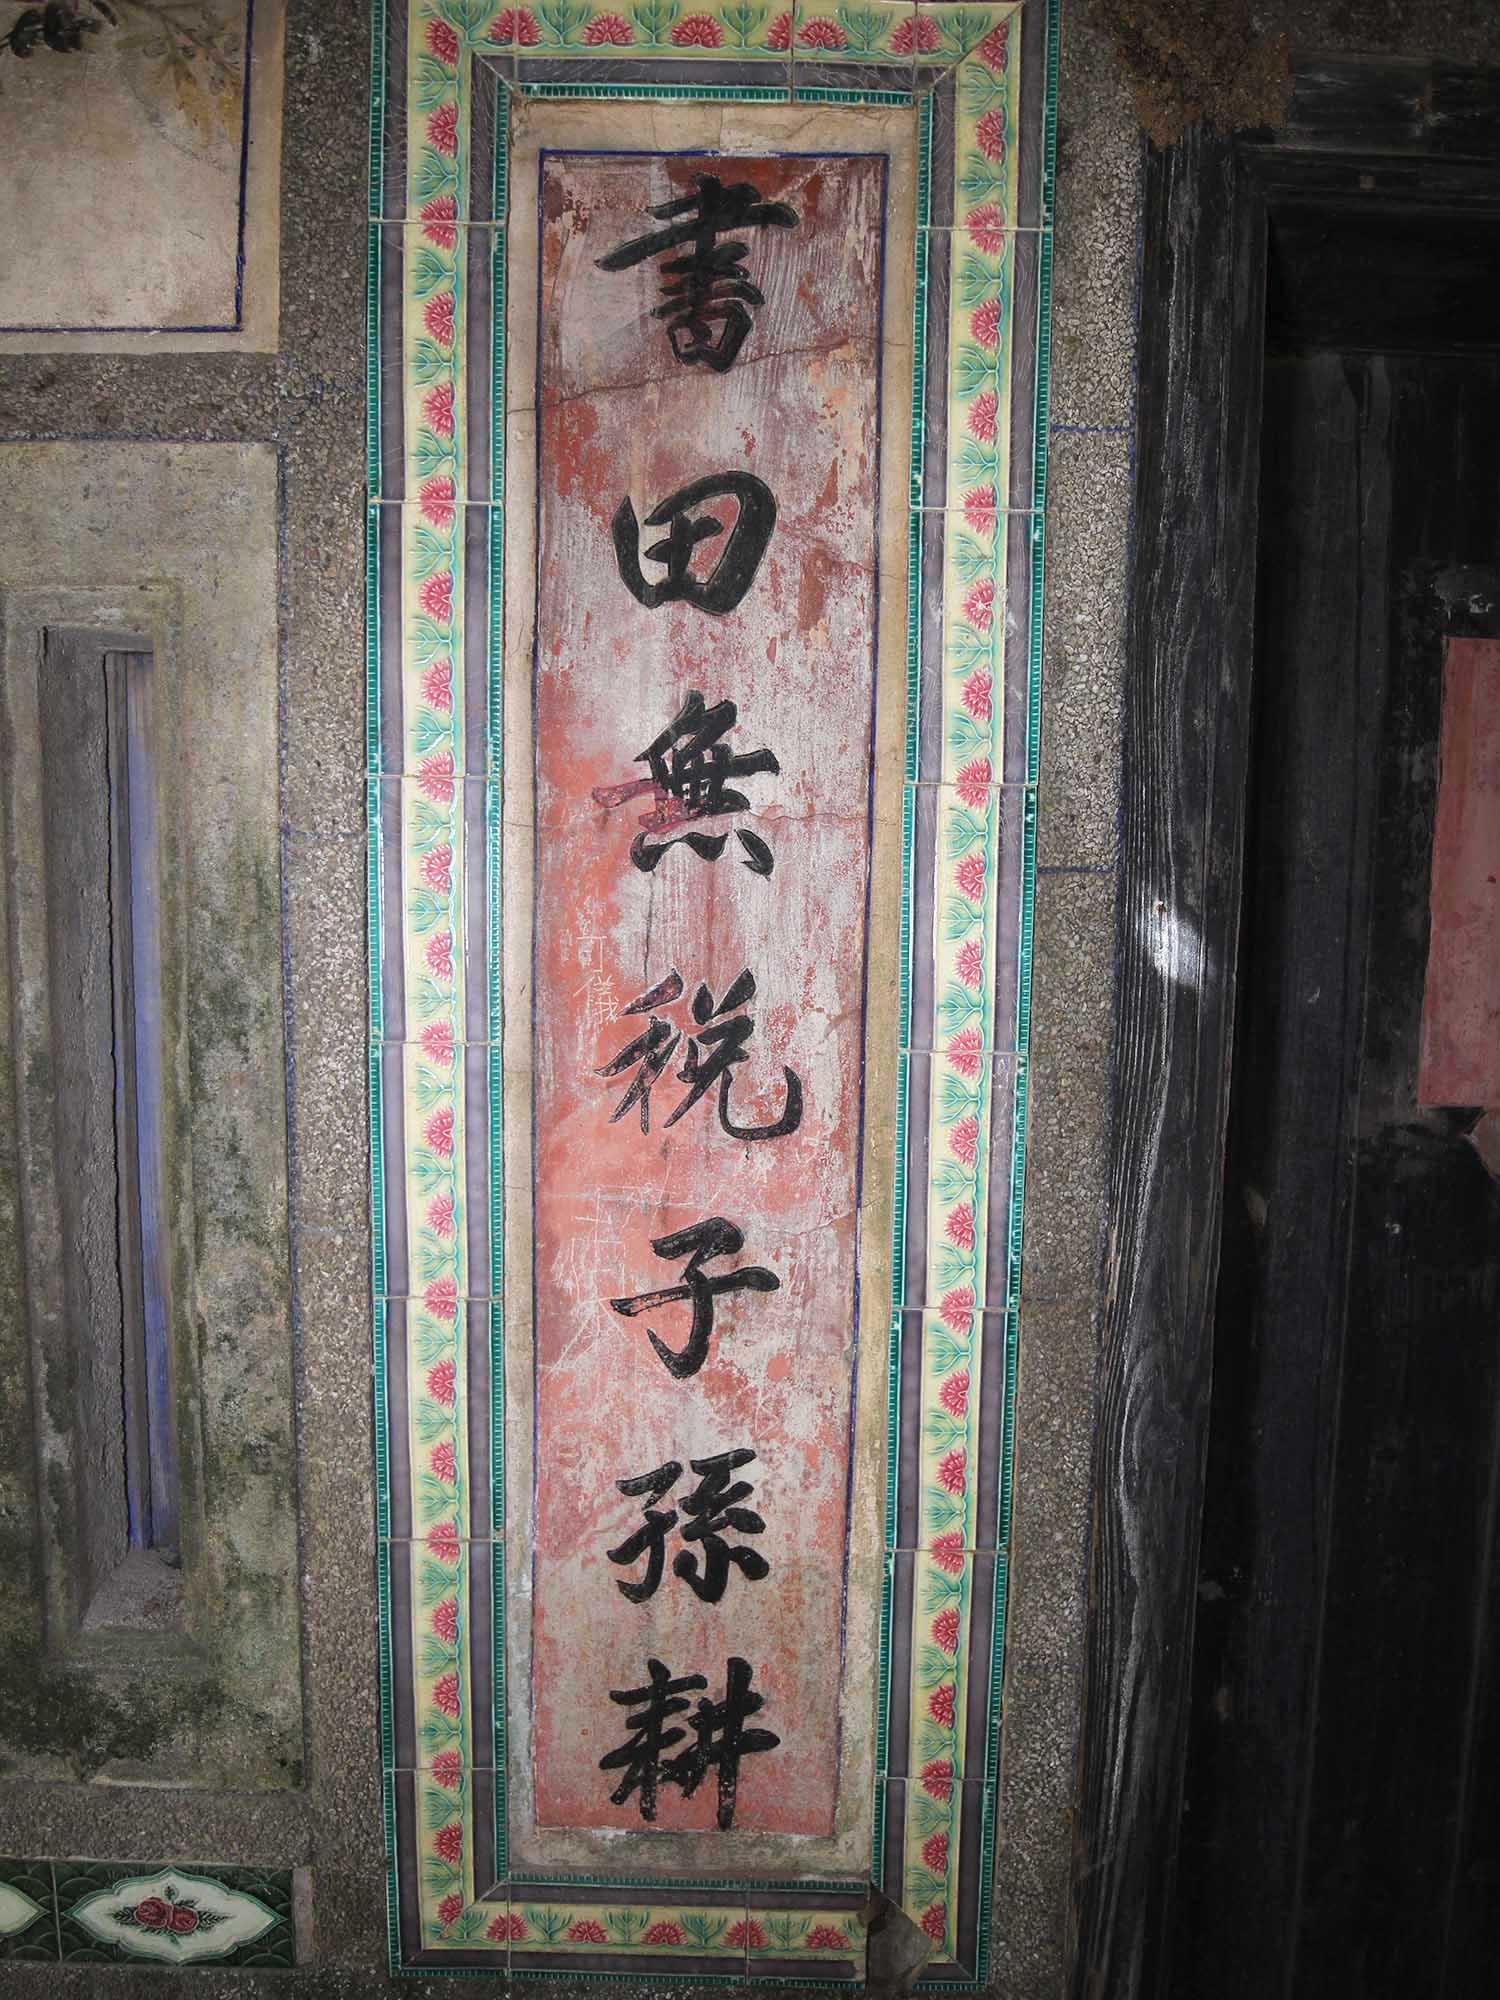 書田無税子孫耕